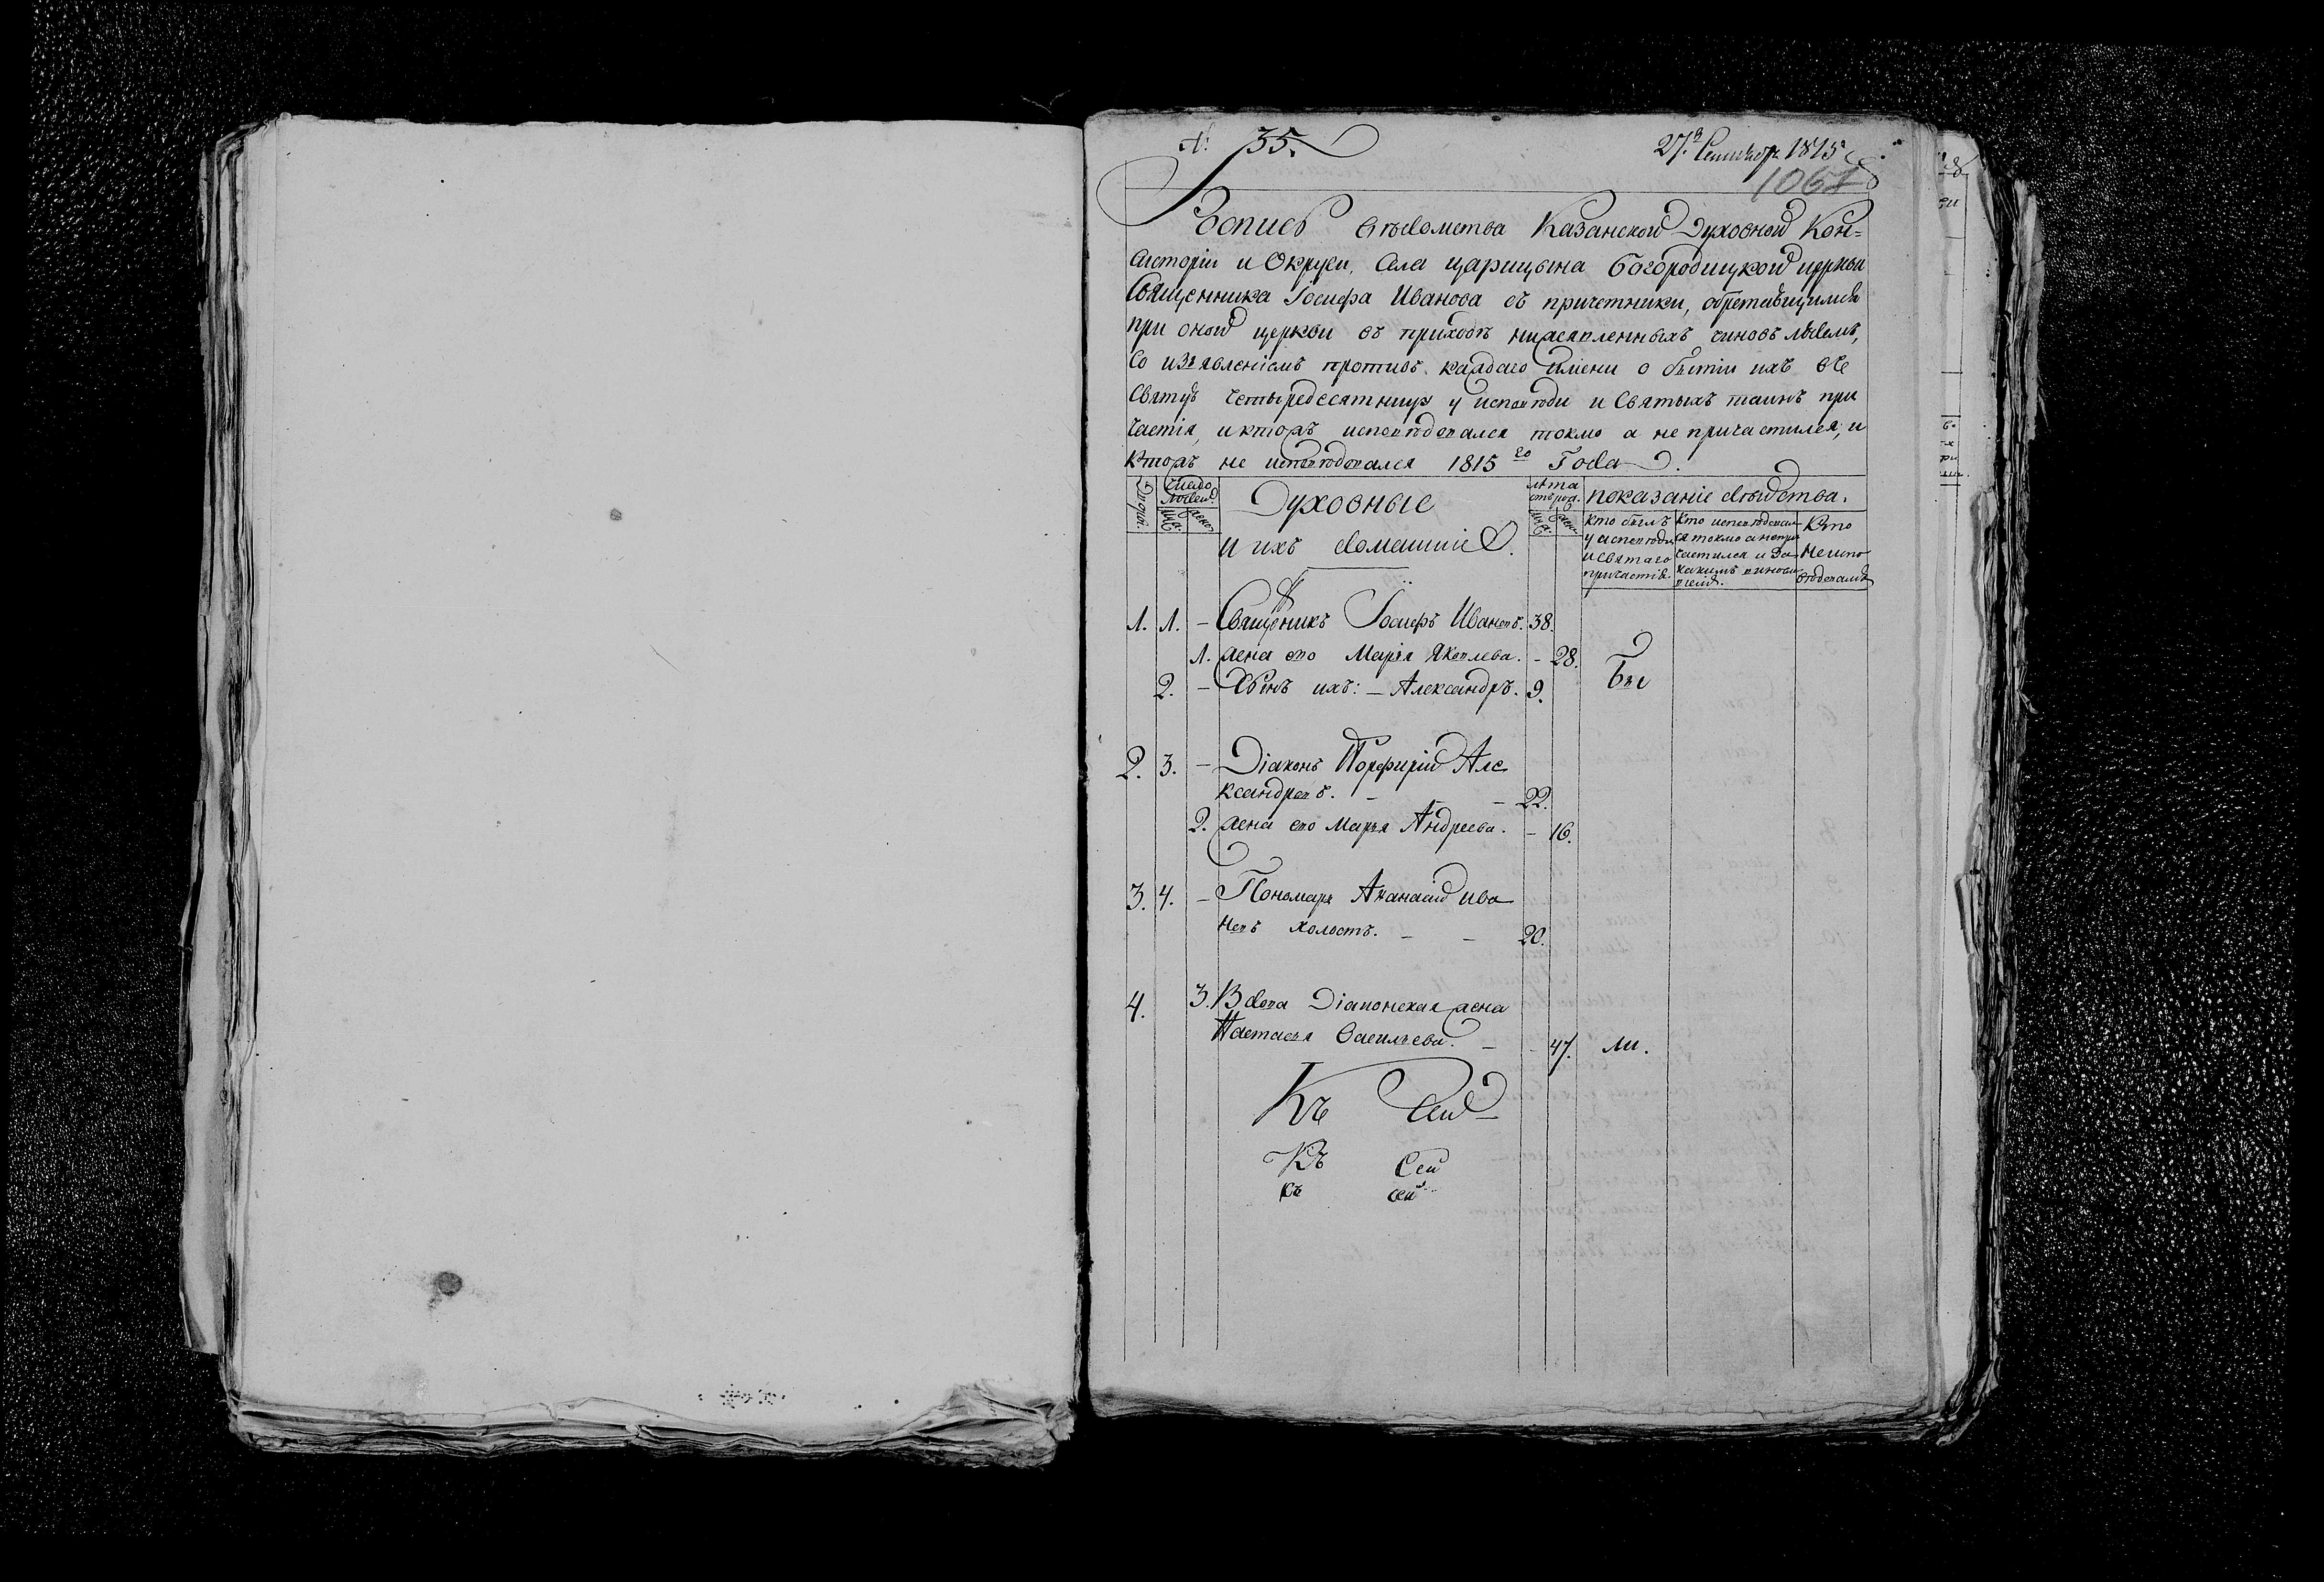 № 35.
27го Сентября 1815
1061
Роспись вѣдомства Казанской Духовной Кон=
систоріи и Округи, Села царицына Богородицкой церкви
Священника Іосифа Иванова съ причетники, обретающимся
при оной церкви въ приходѣ нижеявленныхъ чиновъ людемъ,
Со изъявленіемъ противъ каждаго имени о бытіи ихъ во
Святую четыредесятницу у исповѣди и Святыхъ таинъ при
частія, и ктожъ исповѣдовался токмо а не причастился, и
ктожъ не исповѣдовался 1815го Года.
Дворы. Число людей. Духовные лѣта отъ род. показаніе дѣйства.
муж. жен. муж. жен. Кто былъ Кто исповѣдовал Кто
и ихъ домашніе. у исповѣди ся токмо а не при не испо
и святаго частился и за вѣдовался
причастія. какимъ винословіемъ.
1. 1. – Священикъ Іосифъ Ивановъ. 38.
1. жена его Марія Яковлева. – 28.
2. – Сынъ ихъ: – Александръ. 9. Бы
2. 3. – Діаконъ Порфирій Але
ксандровъ. – – – 22.
2. жена его Марья Андреева. – 16.
3. 4. – Пономарь Афанасій ива
новъ холостъ. – – 20.
4. 3. Вдова Діаконская жена
Настасья Васильева. – – 47. ли.
Къ Сей
Къ Сей
Къ сей